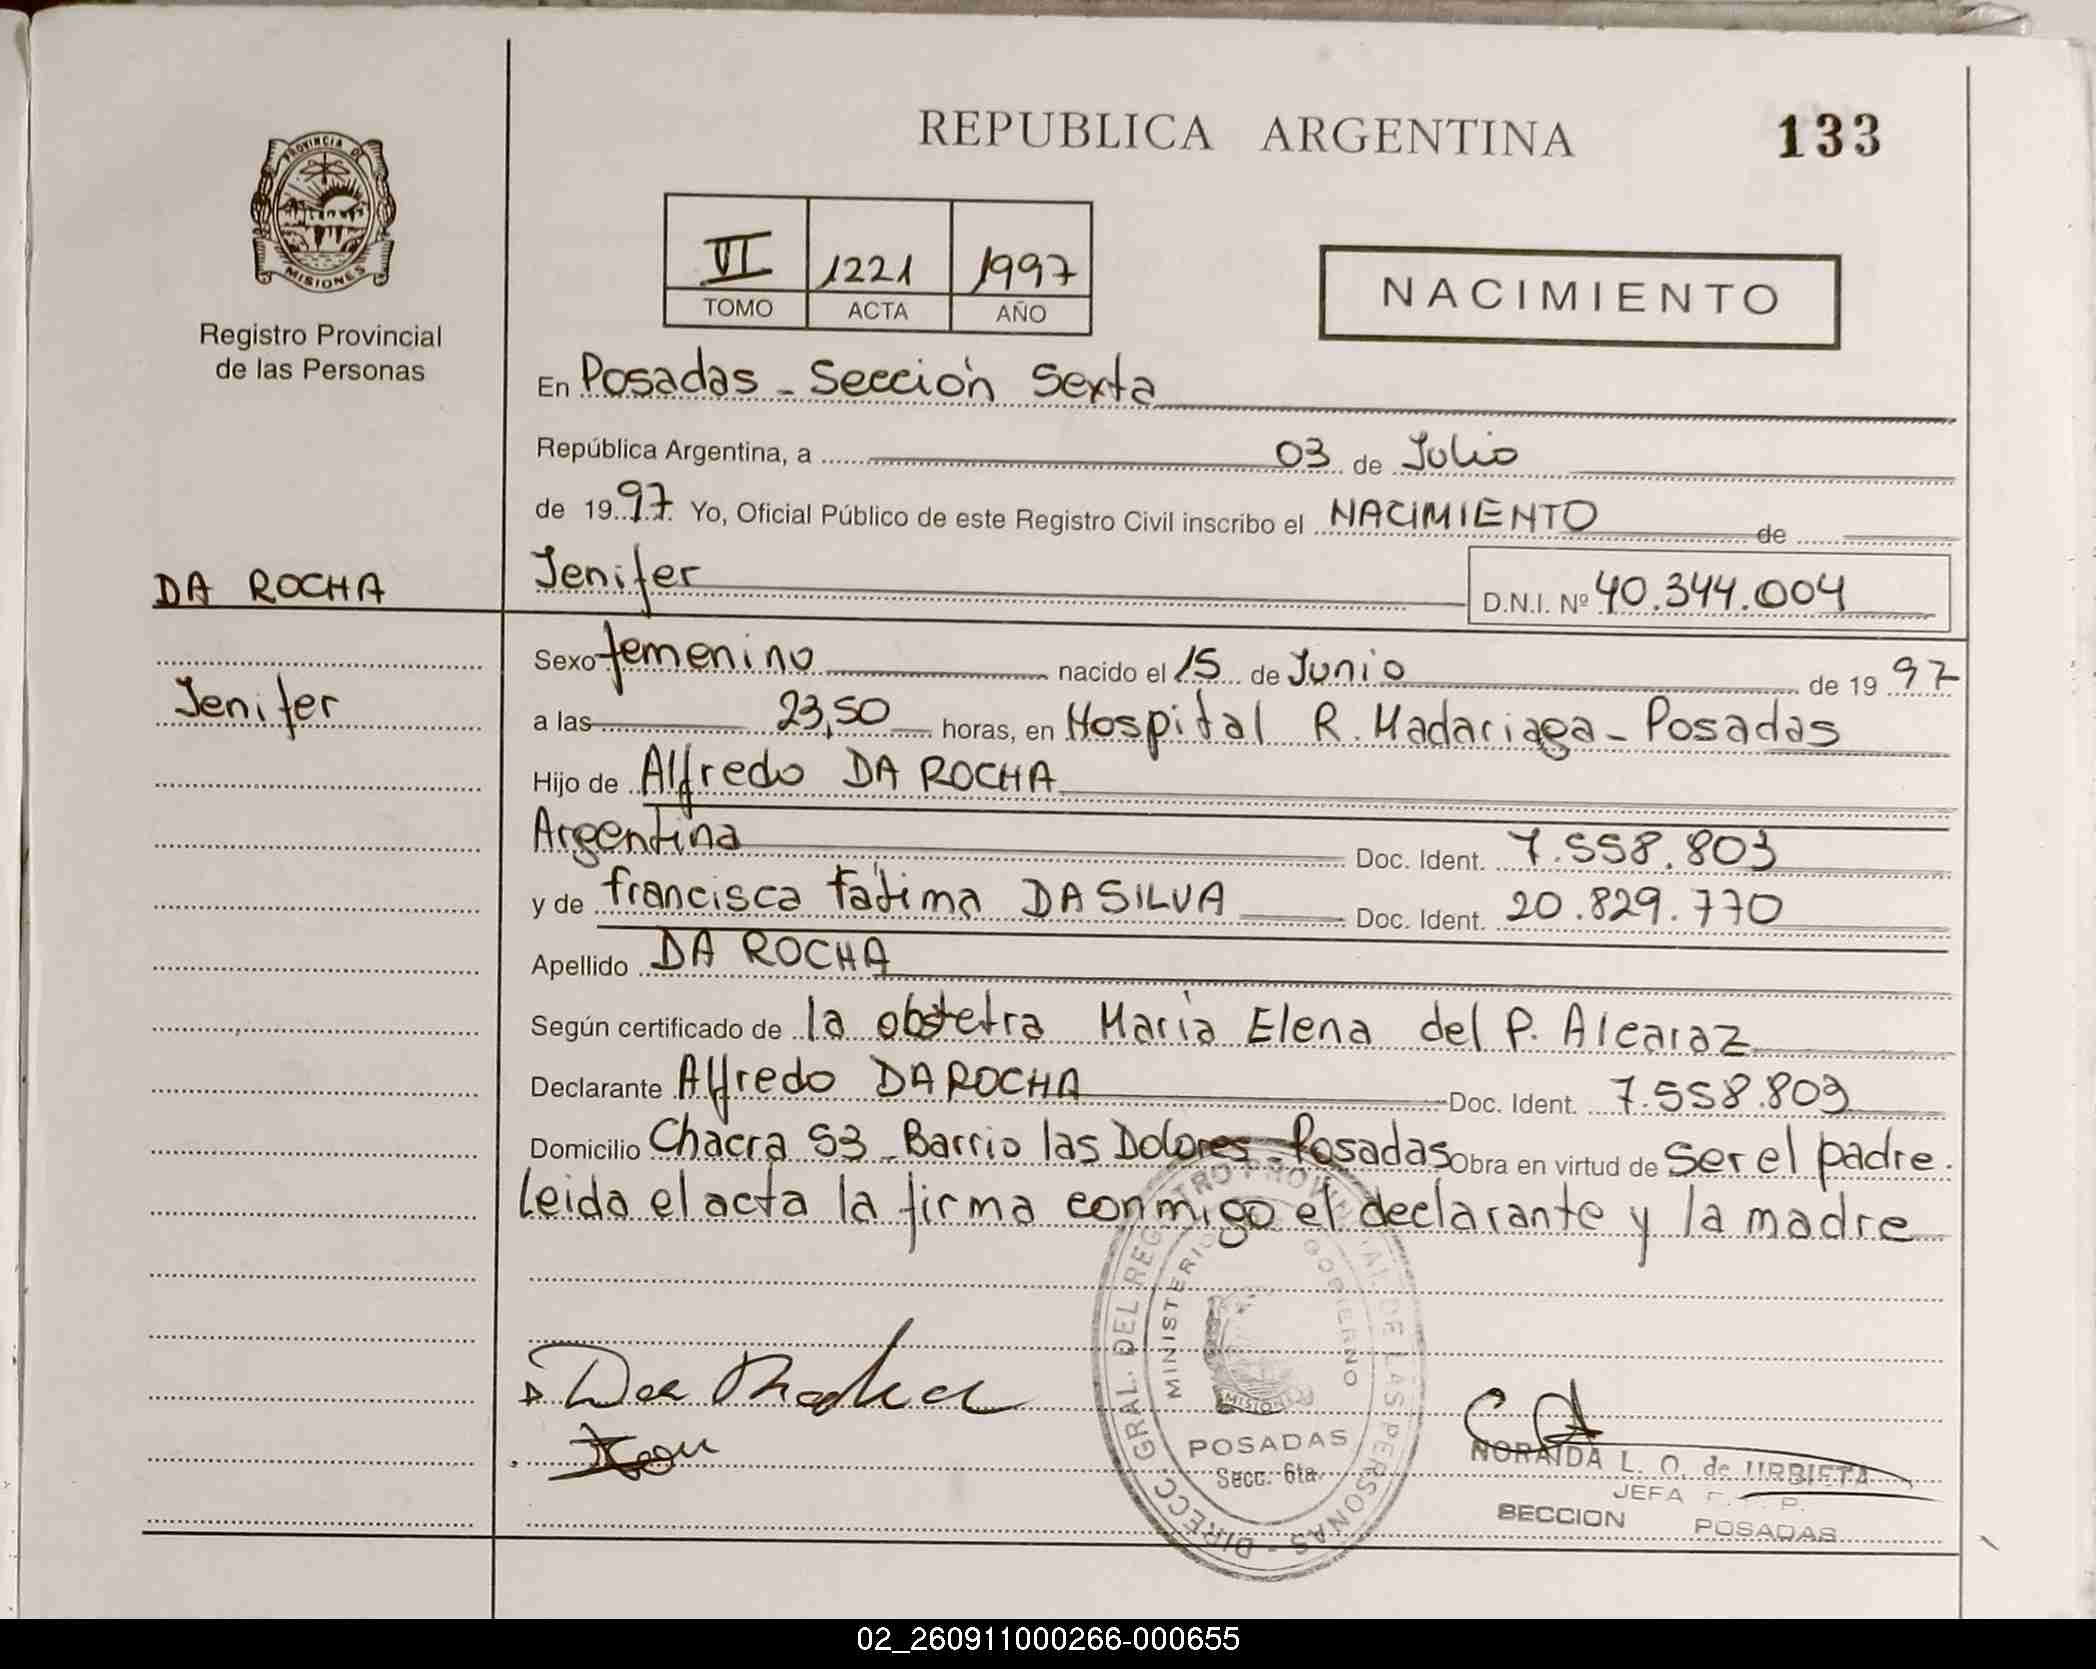 REPUBLICA ARGENTINA
133
PROVINCIA DE
MISIONES
Registro Provincial
de las Personas
VI 1221 1997
TOMO ACTA AÑO
NACIMIENTO
En Posadas - Sección Sexta
República Argentina, a 03 de Julio
de 1997. Yo, Oficial Público de este Registro Civil inscribo el NACIMIENTO de
DA ROCHA
Jenifer
Jenifer D.N.I. Nº 40.344.004
Sexo femenino nacido el 15 de Junio de 1997
a las 23,50 horas, en Hospital R. Madariaga - Posadas
Hijo de Alfredo DA ROCHA
Argentina Doc. Ident. 7.558.803
y de francisca fátima DA SILVA Doc. Ident. 20.829.770
Apellido DA ROCHA
Según certificado de la obstetra María Elena del P. Alcaraz
Declarante Alfredo DA ROCHA Doc. Ident. 7.558.809
Domicilio Chacra 53 - Barrio las Dolores - Posadas Obra en virtud de ser el padre.
Leida el acta la firma conmigo el declarante y la madre
DIRECC GRAL. DEL REGISTRO PROVINCIAL DE LAS PERSONAS -
MINISTERIO GOBIERNO
MISIONES
POSADAS
Secc. 6ta.
Da Rocha
NORAIDA L. O. de URBIETA
JEFA
SECCION POSADAS
02_260911000266-000655